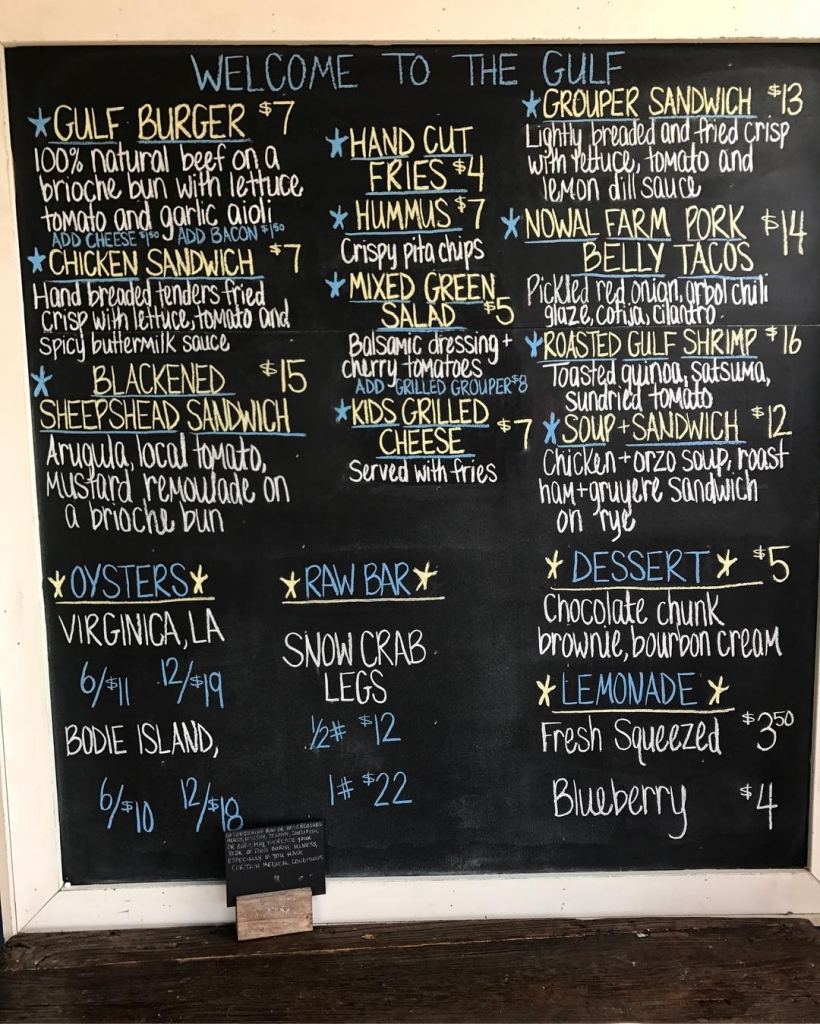 WELCOME TO THE GULF
GULF BURGER $7
100% natural beef on a
brioche bun with lettuce
tomato and garlic aioli
ADD CHEESE $1.50 ADD BACON $1.50
CHICKEN SANDWICH $7
Hand breaded tenders fried
crisp with lettuce, tomato and
spicy buttermilk sauce
BLACKENED $15
SHEEPSHEAD SANDWICH
Arugula, local tomato,
mustard remoulade on
a brioche bun
HAND CUT
FRIES $4
HUMMUS $7
Crispy pita chips
MIXED GREEN
SALAD $5
Balsamic dressing +
cherry tomatoes
ADD GRILLED GROUPER $8
KIDS GRILLED
CHEESE $7
Served with fries
GROUPER SANDWICH $13
Lightly breaded and fried crisp
with lettuce, tomato and
lemon dill sauce
NOWAL FARM PORK $14
BELLY TACOS
Pickled red onion, arbol chili
glaze, cotija, cilantro
ROASTED GULF SHRIMP $16
Toasted quinoa, satsuma,
sundried tomato
SOUP + SANDWICH $12
Chicken + orzo soup, roast
ham + gruyere sandwich
on rye
OYSTERS
VIRGINICA, LA
6/$11 12/$19
BODIE ISLAND,
6/$10 12/$18
RAW BAR
SNOW CRAB
LEGS
1/2# $12
1# $22
DESSERT $5
Chocolate chunk
brownie, bourbon cream
LEMONADE
Fresh Squeezed $3.50
Blueberry $4
CONSUMING RAW OR UNDERCOOKED
MEATS, POULTRY, SEAFOOD, SHELLFISH,
OR EGGS MAY INCREASE YOUR
RISK OF FOOD BORNE ILLNESS,
ESPECIALLY IF YOU HAVE
CERTAIN MEDICAL CONDITIONS